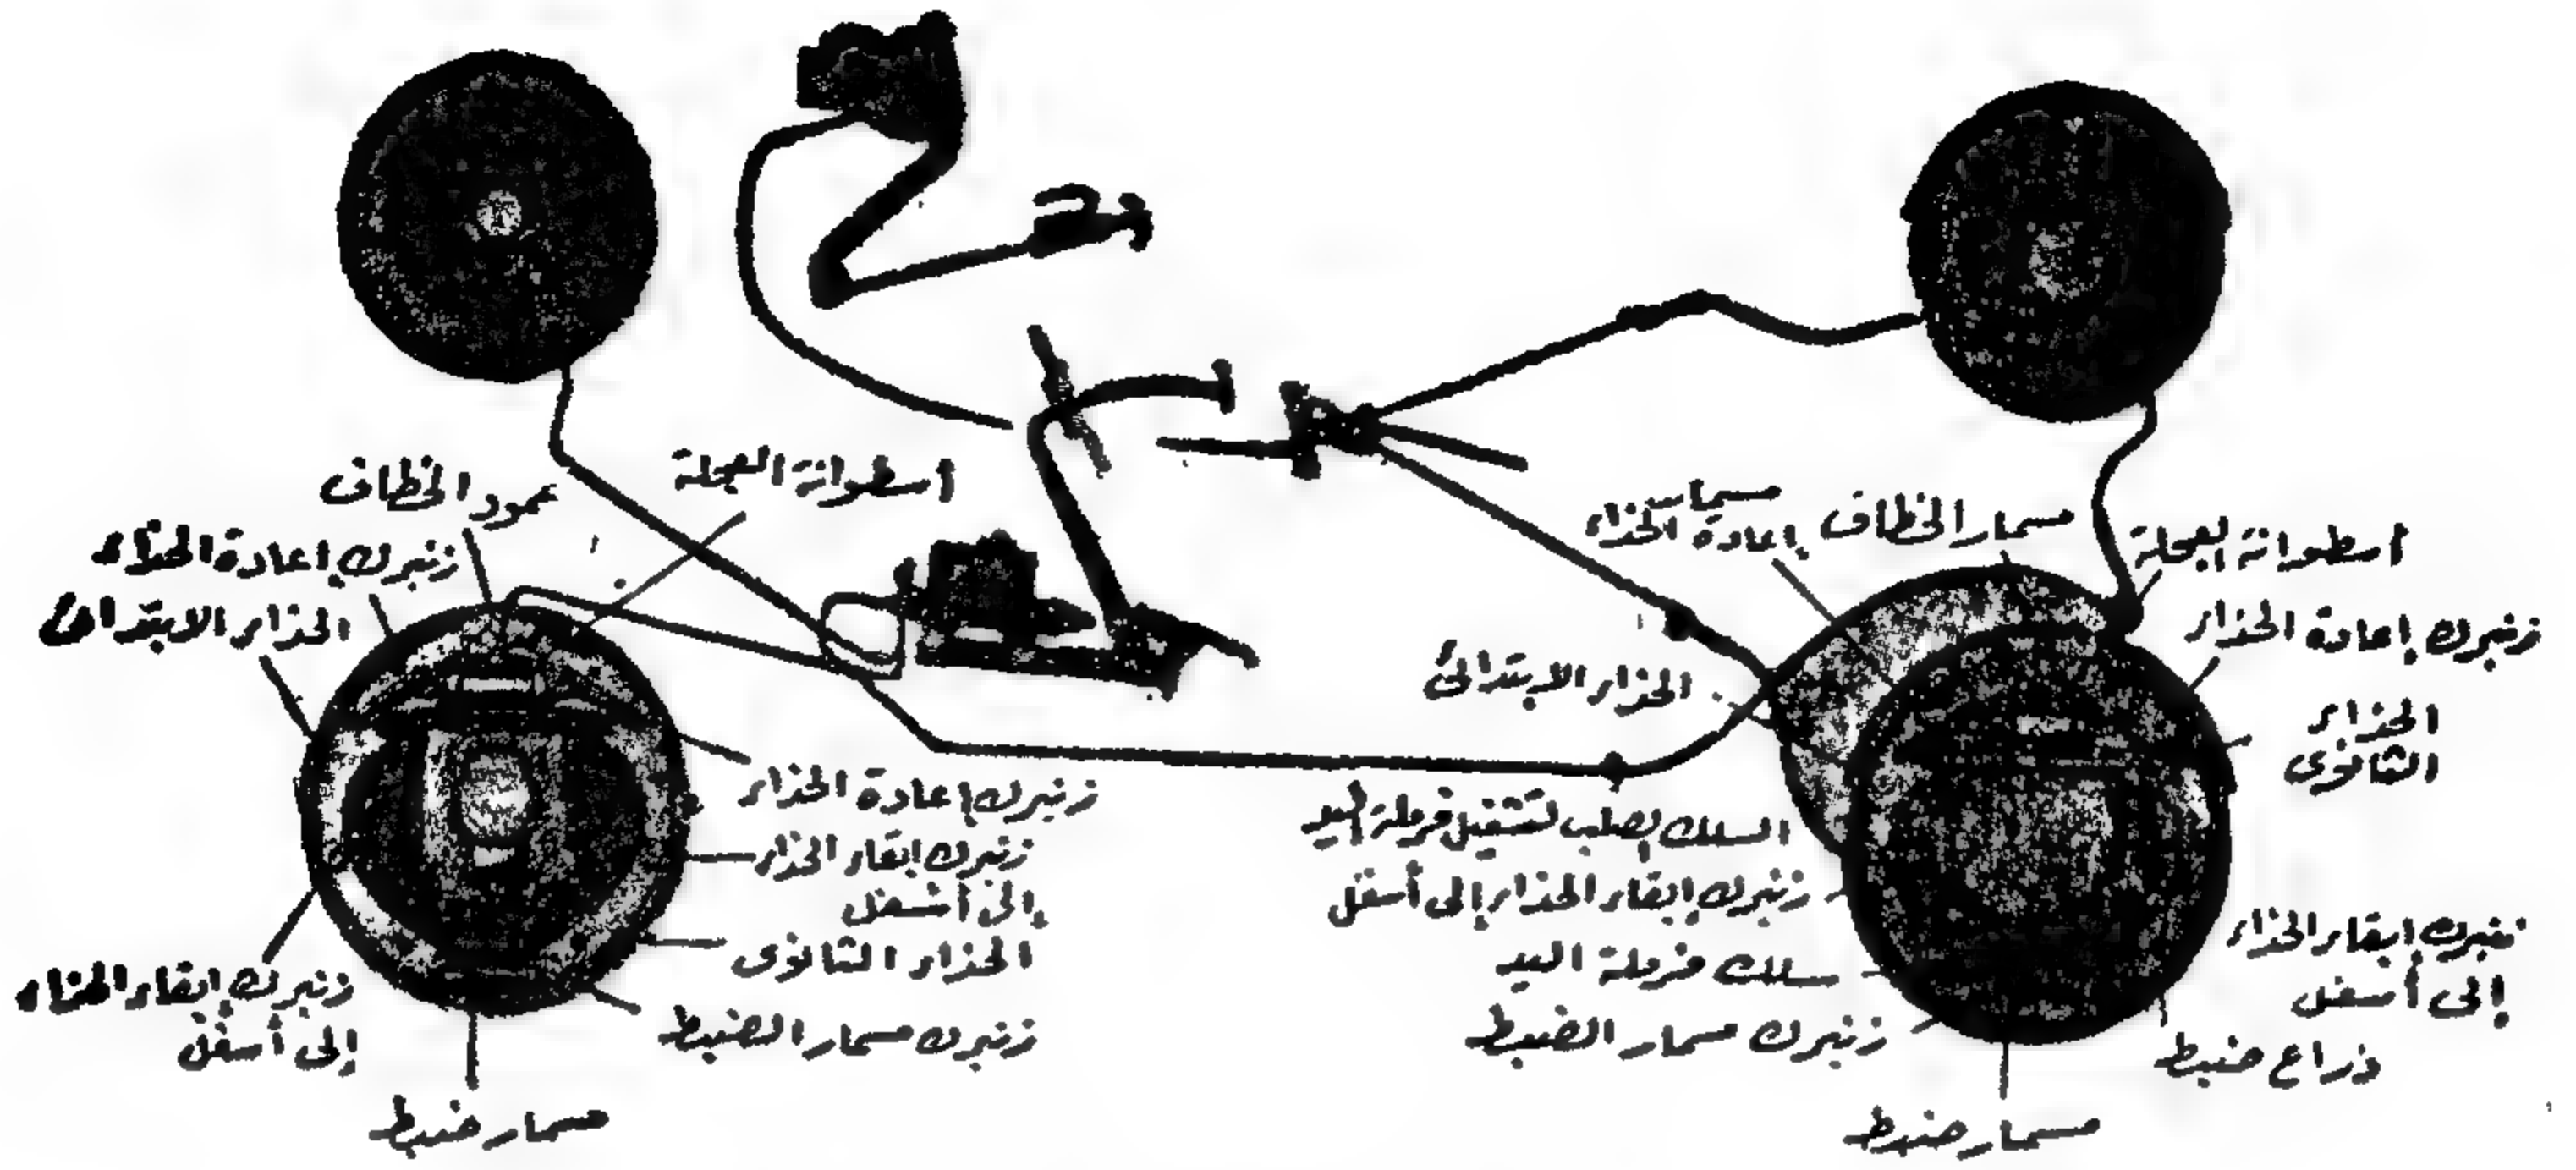 عمود الخطاف
اسطوانة العجلة
زنبرك إعادة الحذاء
الحذاء الابتدائى
زنبرك إعادة الحذاء
زنبرك إبقاء الحذاء
إلى أسفل
الحذاء الثانوى
زنبرك مسمار الضبط
زنبرك إبقاء الحذاء
إلى أسفل
مسمار ضبط
مسمار الخطاف
إعادة الحذاء
اسطوانة العجلة
زنبرك إعادة الحذاء
الحذاء الابتدائى
الحذاء
الثانوى
السلك الصلب لتشغيل فرملة اليد
زنبرك إبقاء الحذاء إلى أسفل
سلك فرملة اليد
زنبرك مسمار الضبط
زنبرك إبقاء الحذاء
إلى أسفل
ذراع ضبط
مسمار ضبط